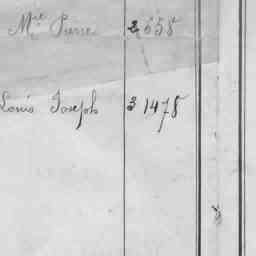 Mie Pierre 2658
Louis Joseph 31478